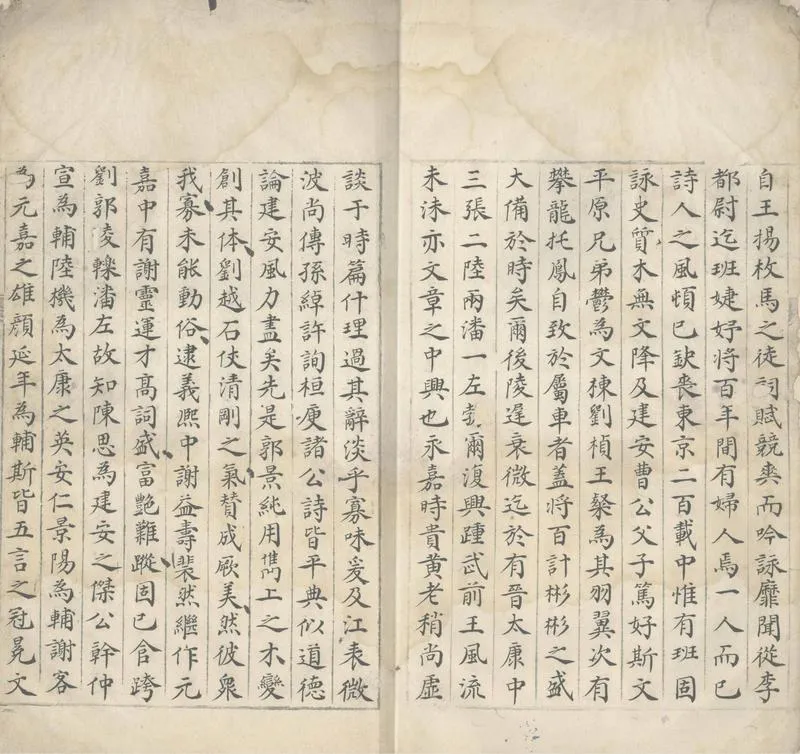 自王揚枚馬之徒詞賦競爽而吟詠靡聞從李
都尉迄班婕妤將百年間有婦人焉一人而已
詩人之風頓已缺喪東京二百載中惟有班固
詠史質木無文降及建安曹公父子篤好斯文
平原兄弟鬱為文棟劉楨王粲為其羽翼次有
攀龍托鳳自致於屬車者蓋將百計彬彬之盛
大備於時矣爾後陵遲衰微迄於有晉太康中
三張二陸兩潘一左勃爾復興踵武前王風流
未沫亦文章之中興也永嘉時貴黃老稍尚虛
談于時篇什理過其辭淡乎寡味爰及江表微
波尚傳孫綽許詢桓庾諸公詩皆平典似道德
論建安風力盡矣先是郭景純用儁工之木變
創其体劉越石伎清剛之氣賛成厥美然彼衆
我寡未能動俗逮義熈中謝益壽裴然繼作元
嘉中有謝靈運才髙詞盛富艷難蹤固已含跨
劉郭凌轢潘左故知陳思為建安之傑公幹仲
宣為輔陸機為太康之英安仁景陽為輔謝客
為元嘉之雄顏延年為輔斯皆五言之冠冕文